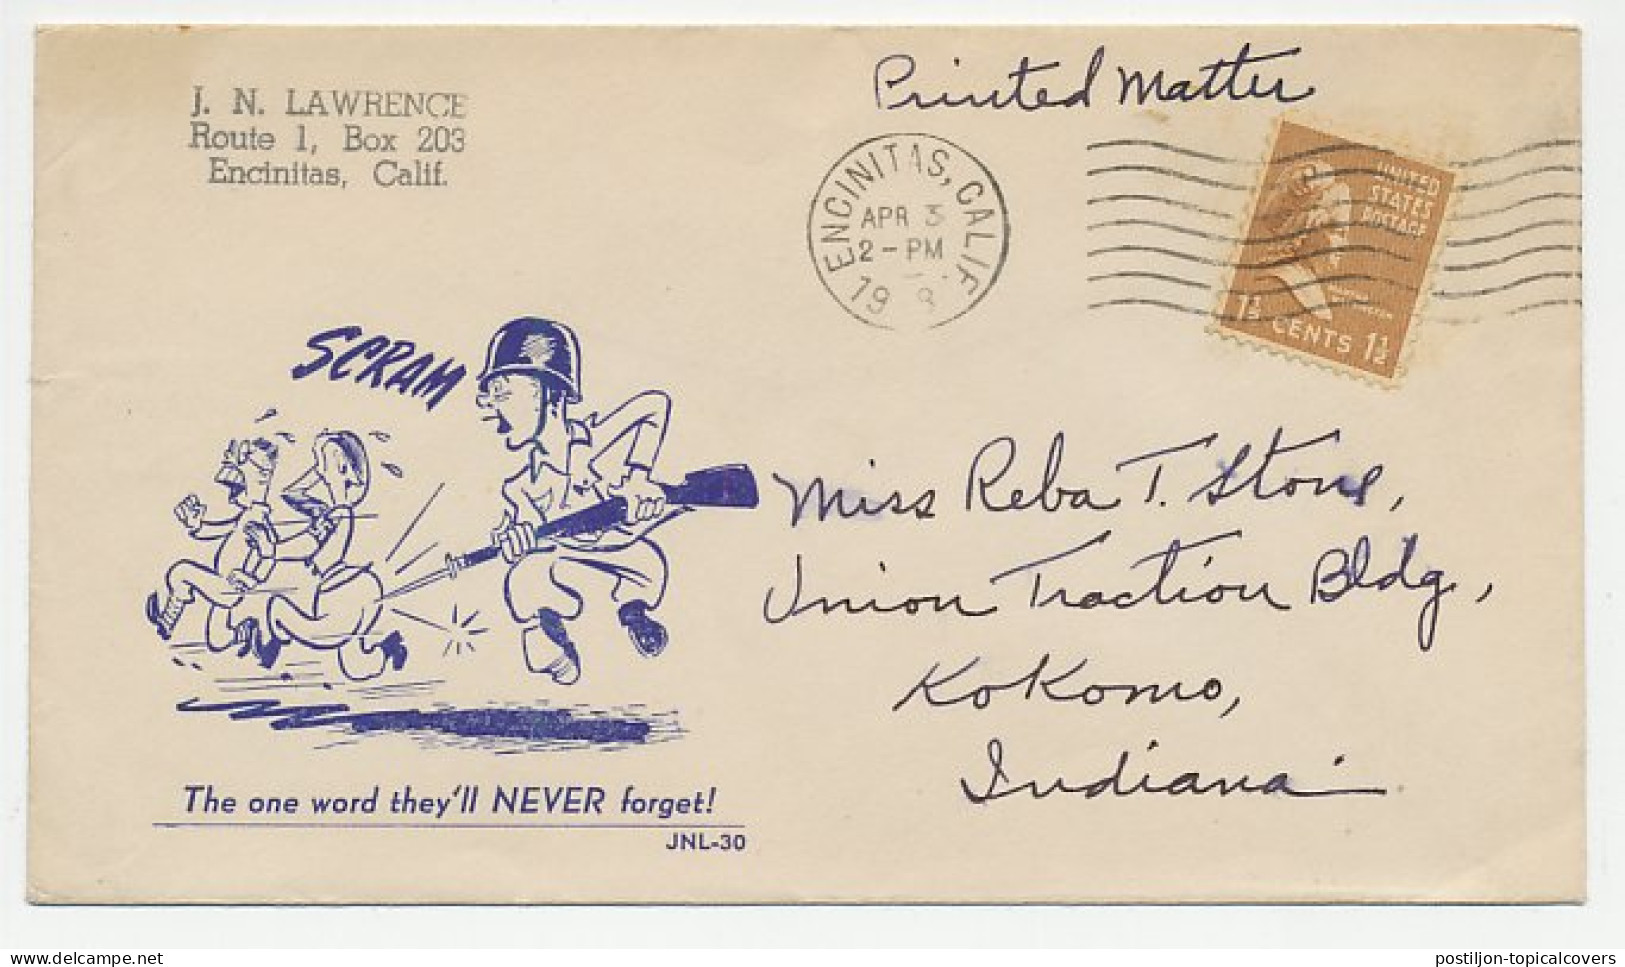 J. N. LAWRENCE
Route 1, Box 203
Encinitas, Calif.
Printed Matter
ENCINITAS, CALIF
APR 3
2-PM
19
UNITED
STATES
POSTAGE
1½ CENTS 1½
SCRAM
Miss Reba T. Stone,
Union Traction Bldg,
Kokomo,
Indiana
The one word they'll NEVER forget!
JNL-30
delcampe.net
postiljon-topicalcovers